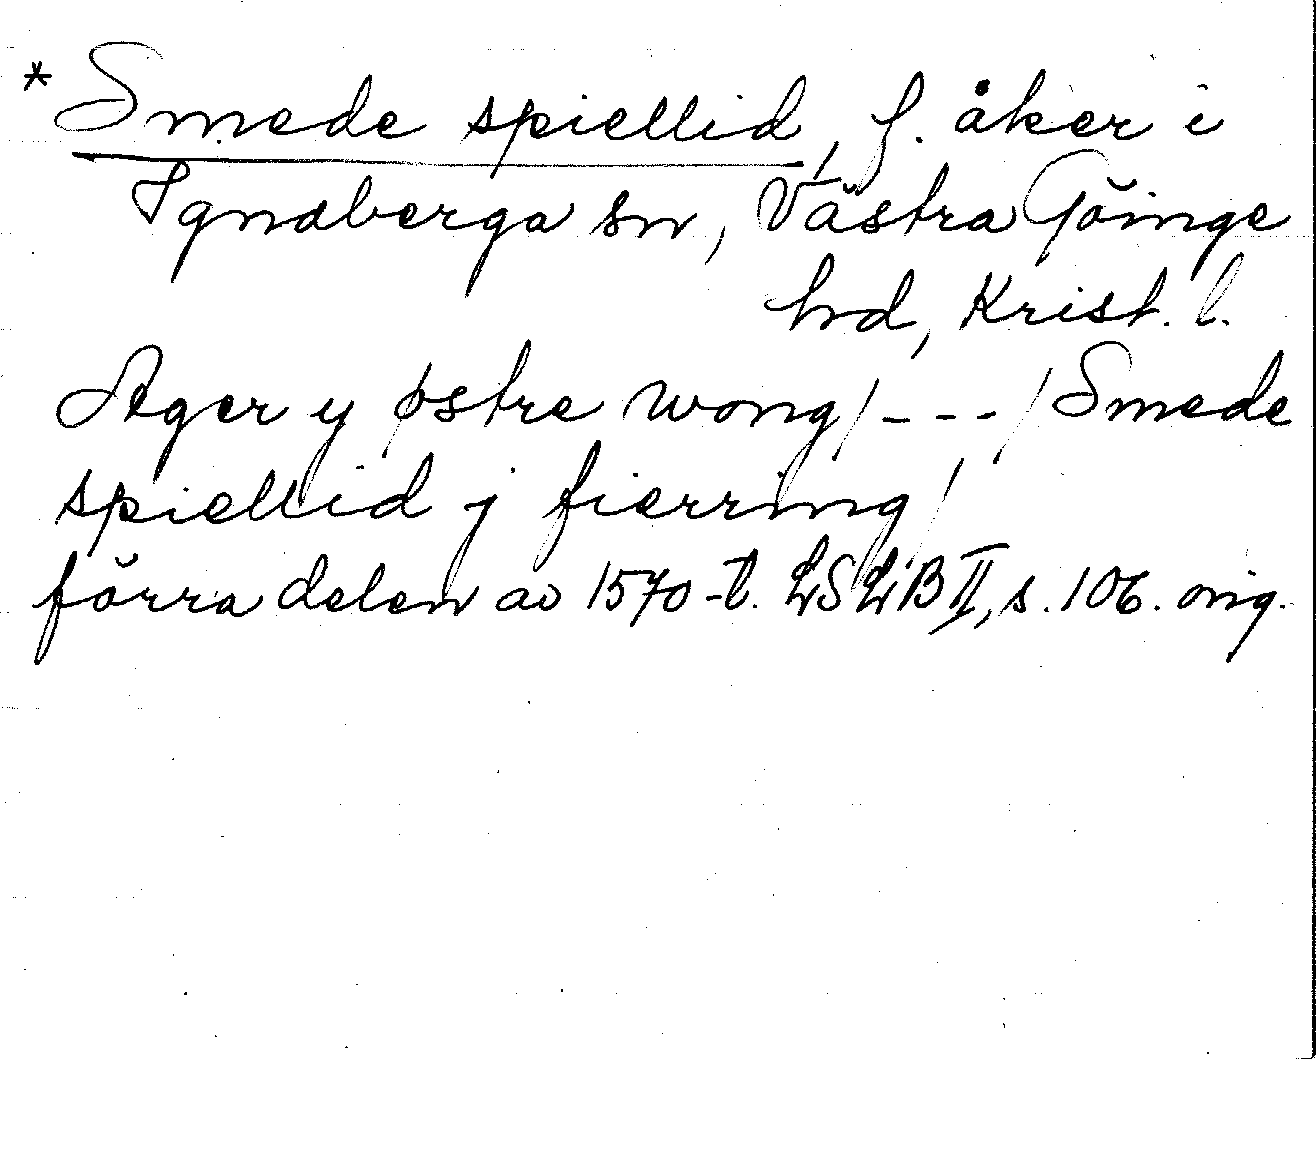 * Smede spiellid, f. åker i
Ignaberga sn, Västra Göinge
hd, Krist. l.
Ager y østre wong / - - - / Smede
spiellid j fierring /
förra delen av 1570-t. LSLB II, s. 106. orig.